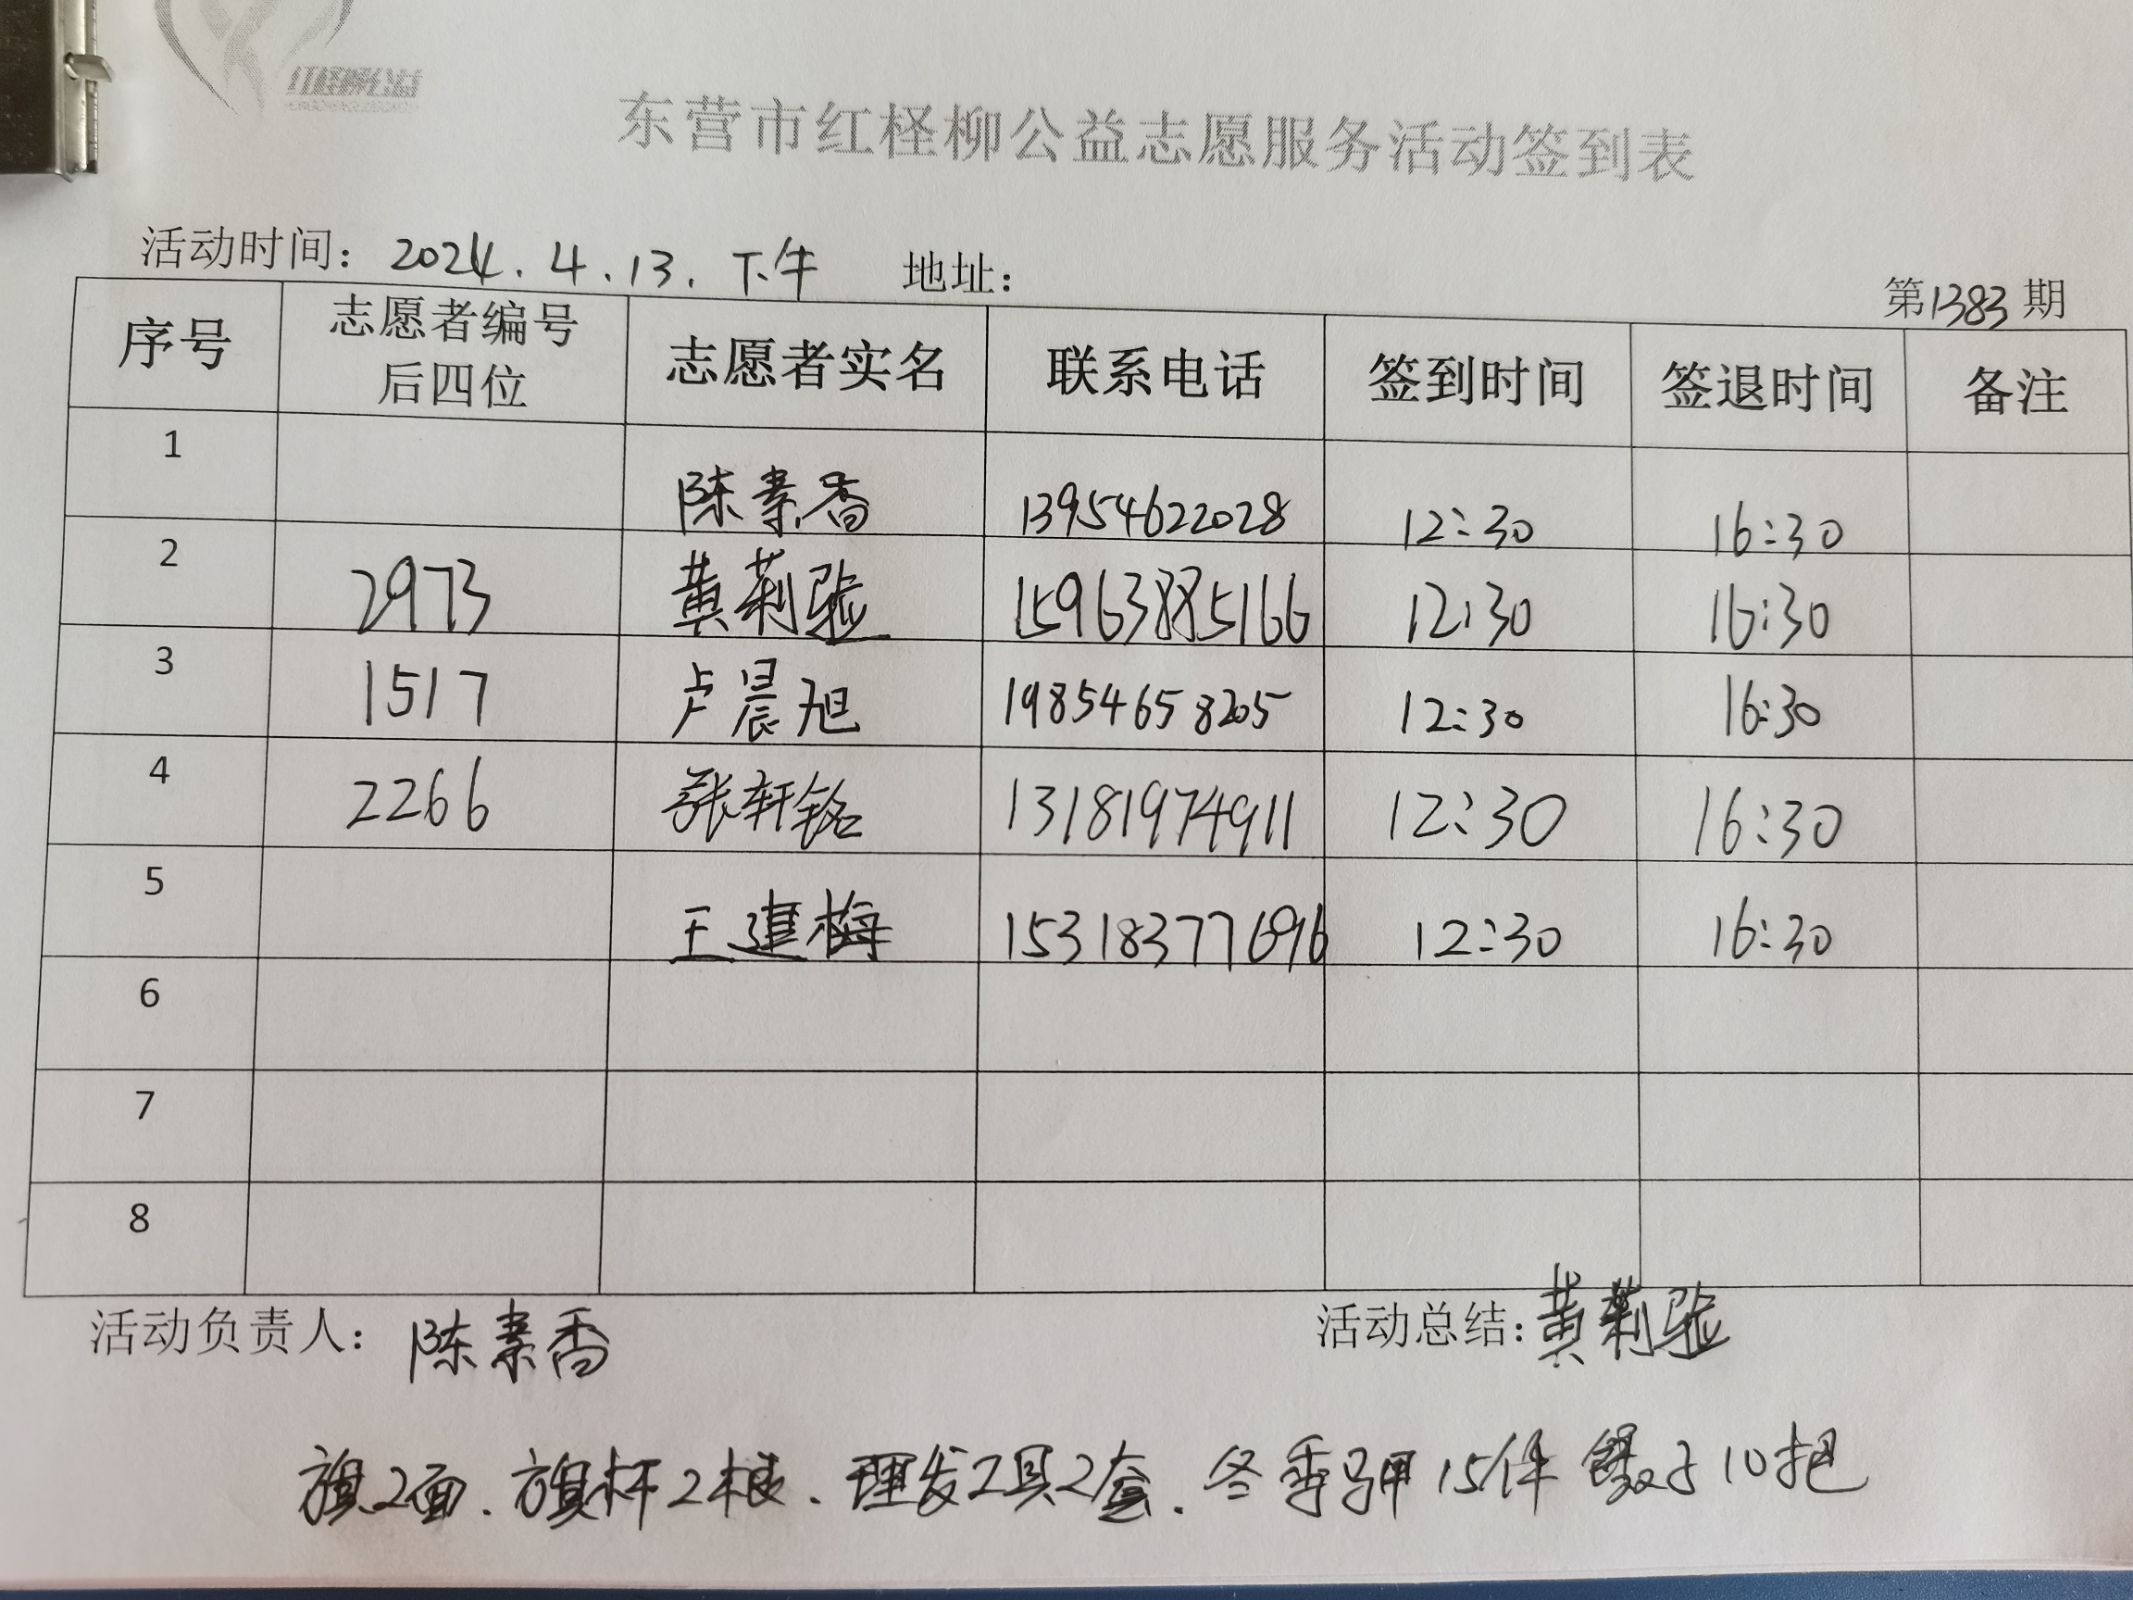 红柽柳公益
东营市红柽柳公益志愿服务活动签到表
活动时间：2024.4.13.下午 地址：
第1383期
序号 志愿者编号后四位 志愿者实名 联系电话 签到时间 签退时间 备注
1 陈素香 13954622028 12:30 16:30
2 2973 黄莉 15963885166 12:30 16:30
3 1517 卢晨旭 19854658205 12:30 16:30
4 2266 张轩铭 13181974911 12:30 16:30
5 王建梅 15318377696 12:30 16:30
6
7
8
活动负责人：陈素香 活动总结：黄莉
旗2面、旗杆2根、理发工具2套、冬季马甲15件 10把